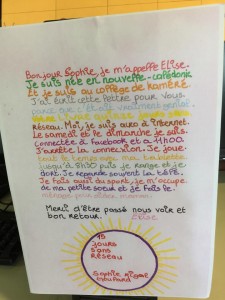 Bonjour Sophie, je m'appelle Elise.
Je suis née en nouvelle-calédonie
Et je suis au collège de kaméré
J'ai écrit cette lettre pour vous
parce que c'était vraiment génial.
réseau. Moi, je suis accro à internet.
Le samedi et le dimanche je suis
connectée à Facebook et à 4h00
J'arrête la connexion. Je joue
tout le temps avec ma tablette
jusqu'à 8h30 puis je range et je
dort. Je regarde souvent la télé.
Je fais aussi du sport, je m'occupe
de ma petite soeur et je fais le
Merci d'être passé nous voir et
bon retour. Elise
15
jours
sans
réseau
Sophie Rigal